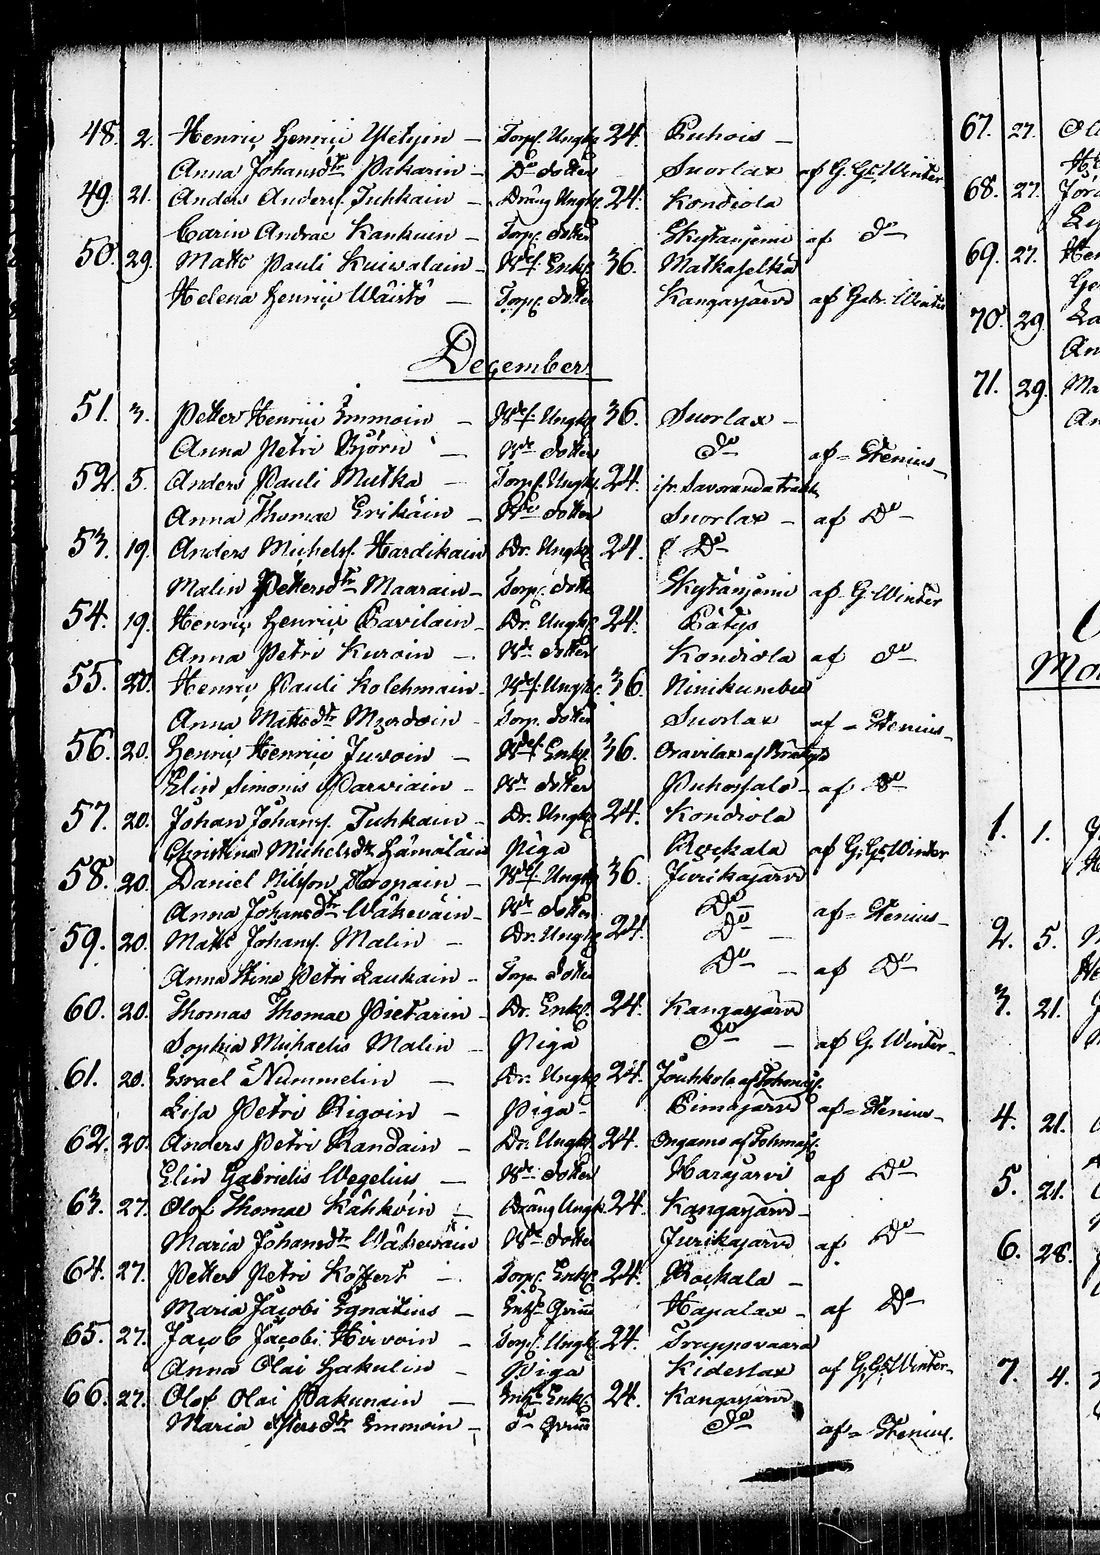 48. 2. Henric Henrici Yletyin – Torpf. Ungk. 24. Ruhois –
Anna Johansdr Pakarin – Do dotter Suorlax af G. Gs Winter
49. 21. Anders Anderss. Tuhkain – Dräng Ungk. 24. Kondiola
Carin Andrae Kankuin – Torp. dotter Skytänjemi af Do
50. 29. Matts Pauli Kuiwalain – Bdef. Enkl. 36. Matkaselkä
Helena Henrici Wäistö – Torp. dotter Kangasjärvi af Gabr. Winter
December
51. 3. Petter Henrici Immoin – Bdef. Ungk. 36. Suorlax –
Anna Petri Björn – Bde dotter Do af – Stenius –
52. 5. Anders Pauli Mutka – Torpf. Ungk. 24. ifr. Savoranda trakt
Anna Thomae Erikäin – Bde dotter Suorlax – af Do
53. 19. Anders Michelss. Hardikain Dr. Ungk. 24. Do
Malin Pettersdr Maarain – Torp. dotter Skytänjemi af G. Winter
54. 19. Henric Henrici Pavilain – Dr. Ungk. 24. Pätys
Anna Petri Kuroin – Bde dotter Kondiola af Do
55. 20. Henric Pauli Kolehmain – Bdef. Ungk. 36. Ninikumbu
Anna Mattsdr – Torp. dotter Suorlax af – Stenius –
56. 20. Henric Henrici Juvoin – Bdef. Enkl. 36. Oravilax af
Elin Simonis Parviain – Bde dotter Puhossalo – af Do
57. 20. Johan Johanss. Tuhkain – Dr. Ungk. 24. Kondiola
Christina Michelsdr Hämäläin Piga Rockala af G. Gs Winter
58. 20. Daniel Nilsson Koropain – Bdef. Ungk. 36. Jurikajärvi
Anna Johansdr Wäkeväin – Bde dotter Do af – Stenius –
59. 20. Matts Johanss. Malin – Dr. Ungk. 24. Do –
Anna Stina Petri Laukain – Torp. dotter Do – af Do
60. 20. Thomas Thomae Pietarin – Dr. Enkl. 24. Kangasjärvi
Sophia Michaelis Malin – Piga Do – af G. Winter –
61. 20. Esrael Nummelin – Dr. Ungk. 24. Jouhkola af Tohmajf.
Lisa Petri Rigoin – Piga – Pimäjärvi af – Stenius –
62. 20. Anders Petri Randain – Dr. Ungk. 24. Ongamo af Tohmajf.
Elin Gabrielis Wegelius – Bde dotter Harajärvi af Do
63. 27. Olof Thomae Kähköin – Dräng Ungk. 24. Kangasjärvi –
Maria Johansdr Wäkeväin Bde dotter Jurikajärvi af Do
64. 27. Petter Petri Koffert – Torpf. Enkl. 24. Rockala –
Maria Jacobi Egnatius – Enk. Qvinn Hapalax – af Do
65. 27. Jacob Jacobi Hirvoin – Torpf. Ungk. 24. Truppovaara
Anna Olai Hakulin – Piga Kideslax af G. Gs Winter –
66. 27. Olof Olai Pakunain – Enkl. 24. Kangasjärvi
Maria Immoin – Do Qvinn Do af – Stenius.
67. 27.
68. 27.
69. 27.
70. 29.
71. 29.
1. 1.
2. 5.
3. 21.
4. 21.
5. 21.
6. 28.
7. 4.